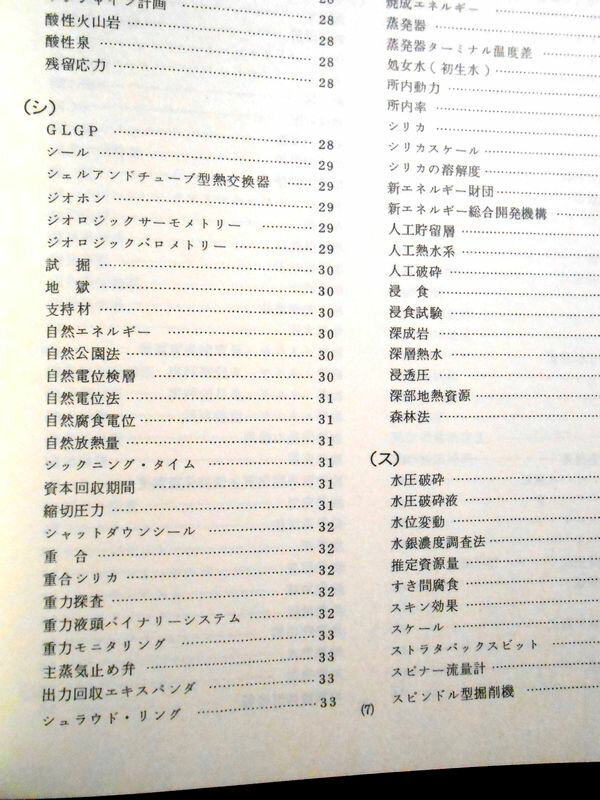 計画 28
酸性火山岩 28
酸性泉 28
残留応力 28
(シ)
GLGP 28
シール 29
シェルアンドチューブ型熱交換器 29
ジオホン 29
ジオロジックサーモメトリー 29
ジオロジックバロメトリー 29
試掘 30
地獄 30
支持材 30
自然エネルギー 30
自然公園法 30
自然電位検層 30
自然電位法 31
自然腐食電位 31
自然放熱量 31
シックニング・タイム 31
資本回収期間 31
縮切圧力 31
シャットダウンシール 32
重合 32
重合シリカ 32
重力探査 32
重力液頭バイナリーシステム 32
重力モニタリング 33
主蒸気止め弁 33
出力回収エキスパンダ 33
シュラウド・リング 33
焼成エネルギー
蒸発器
蒸発器ターミナル温度差
処女水(初生水)
所内動力
所内率
シリカ
シリカスケール
シリカの溶解度
新エネルギー財団
新エネルギー総合開発機構
人工貯留層
人工熱水系
人工破砕
浸食
浸食試験
深成岩
深層熱水
浸透圧
深部地熱資源
森林法
(ス)
水圧破砕
水圧破砕液
水位変動
水銀濃度調査法
推定資源量
すき間腐食
スキン効果
スケール
ストラタパックスビット
スピナー流量計
スピンドル型掘削機
(7)